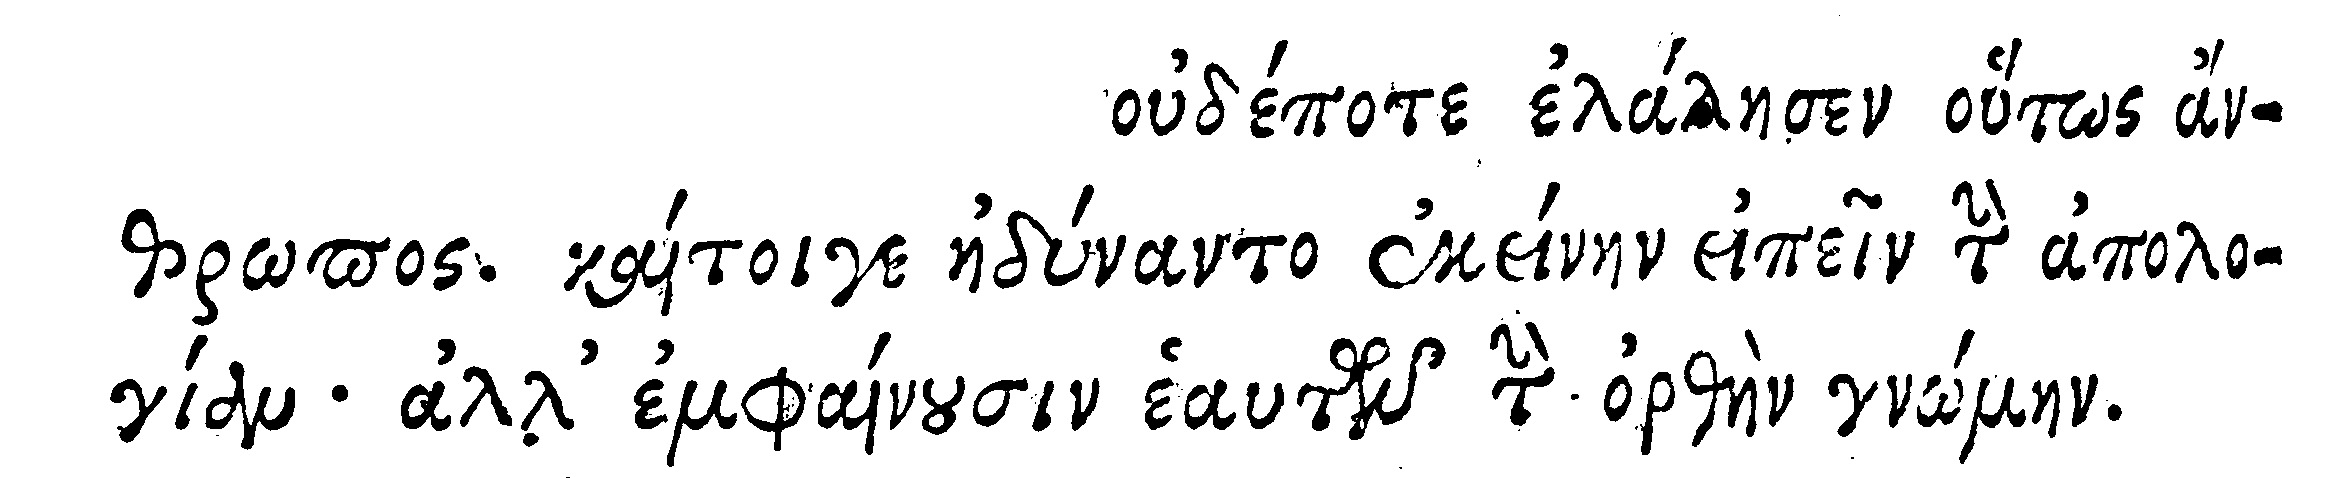 οὐδέποτε ἐλάλησεν οὕτως ἄν-
θρωπος. καίτοιγε ἠδύναντο ἐκείνην εἰπεῖν τὴν ἀπολο-
γίαν · ἀλλ' ἐμφαίνουσιν ἑαυτῶν τὴν ὀρθὴν γνώμην.